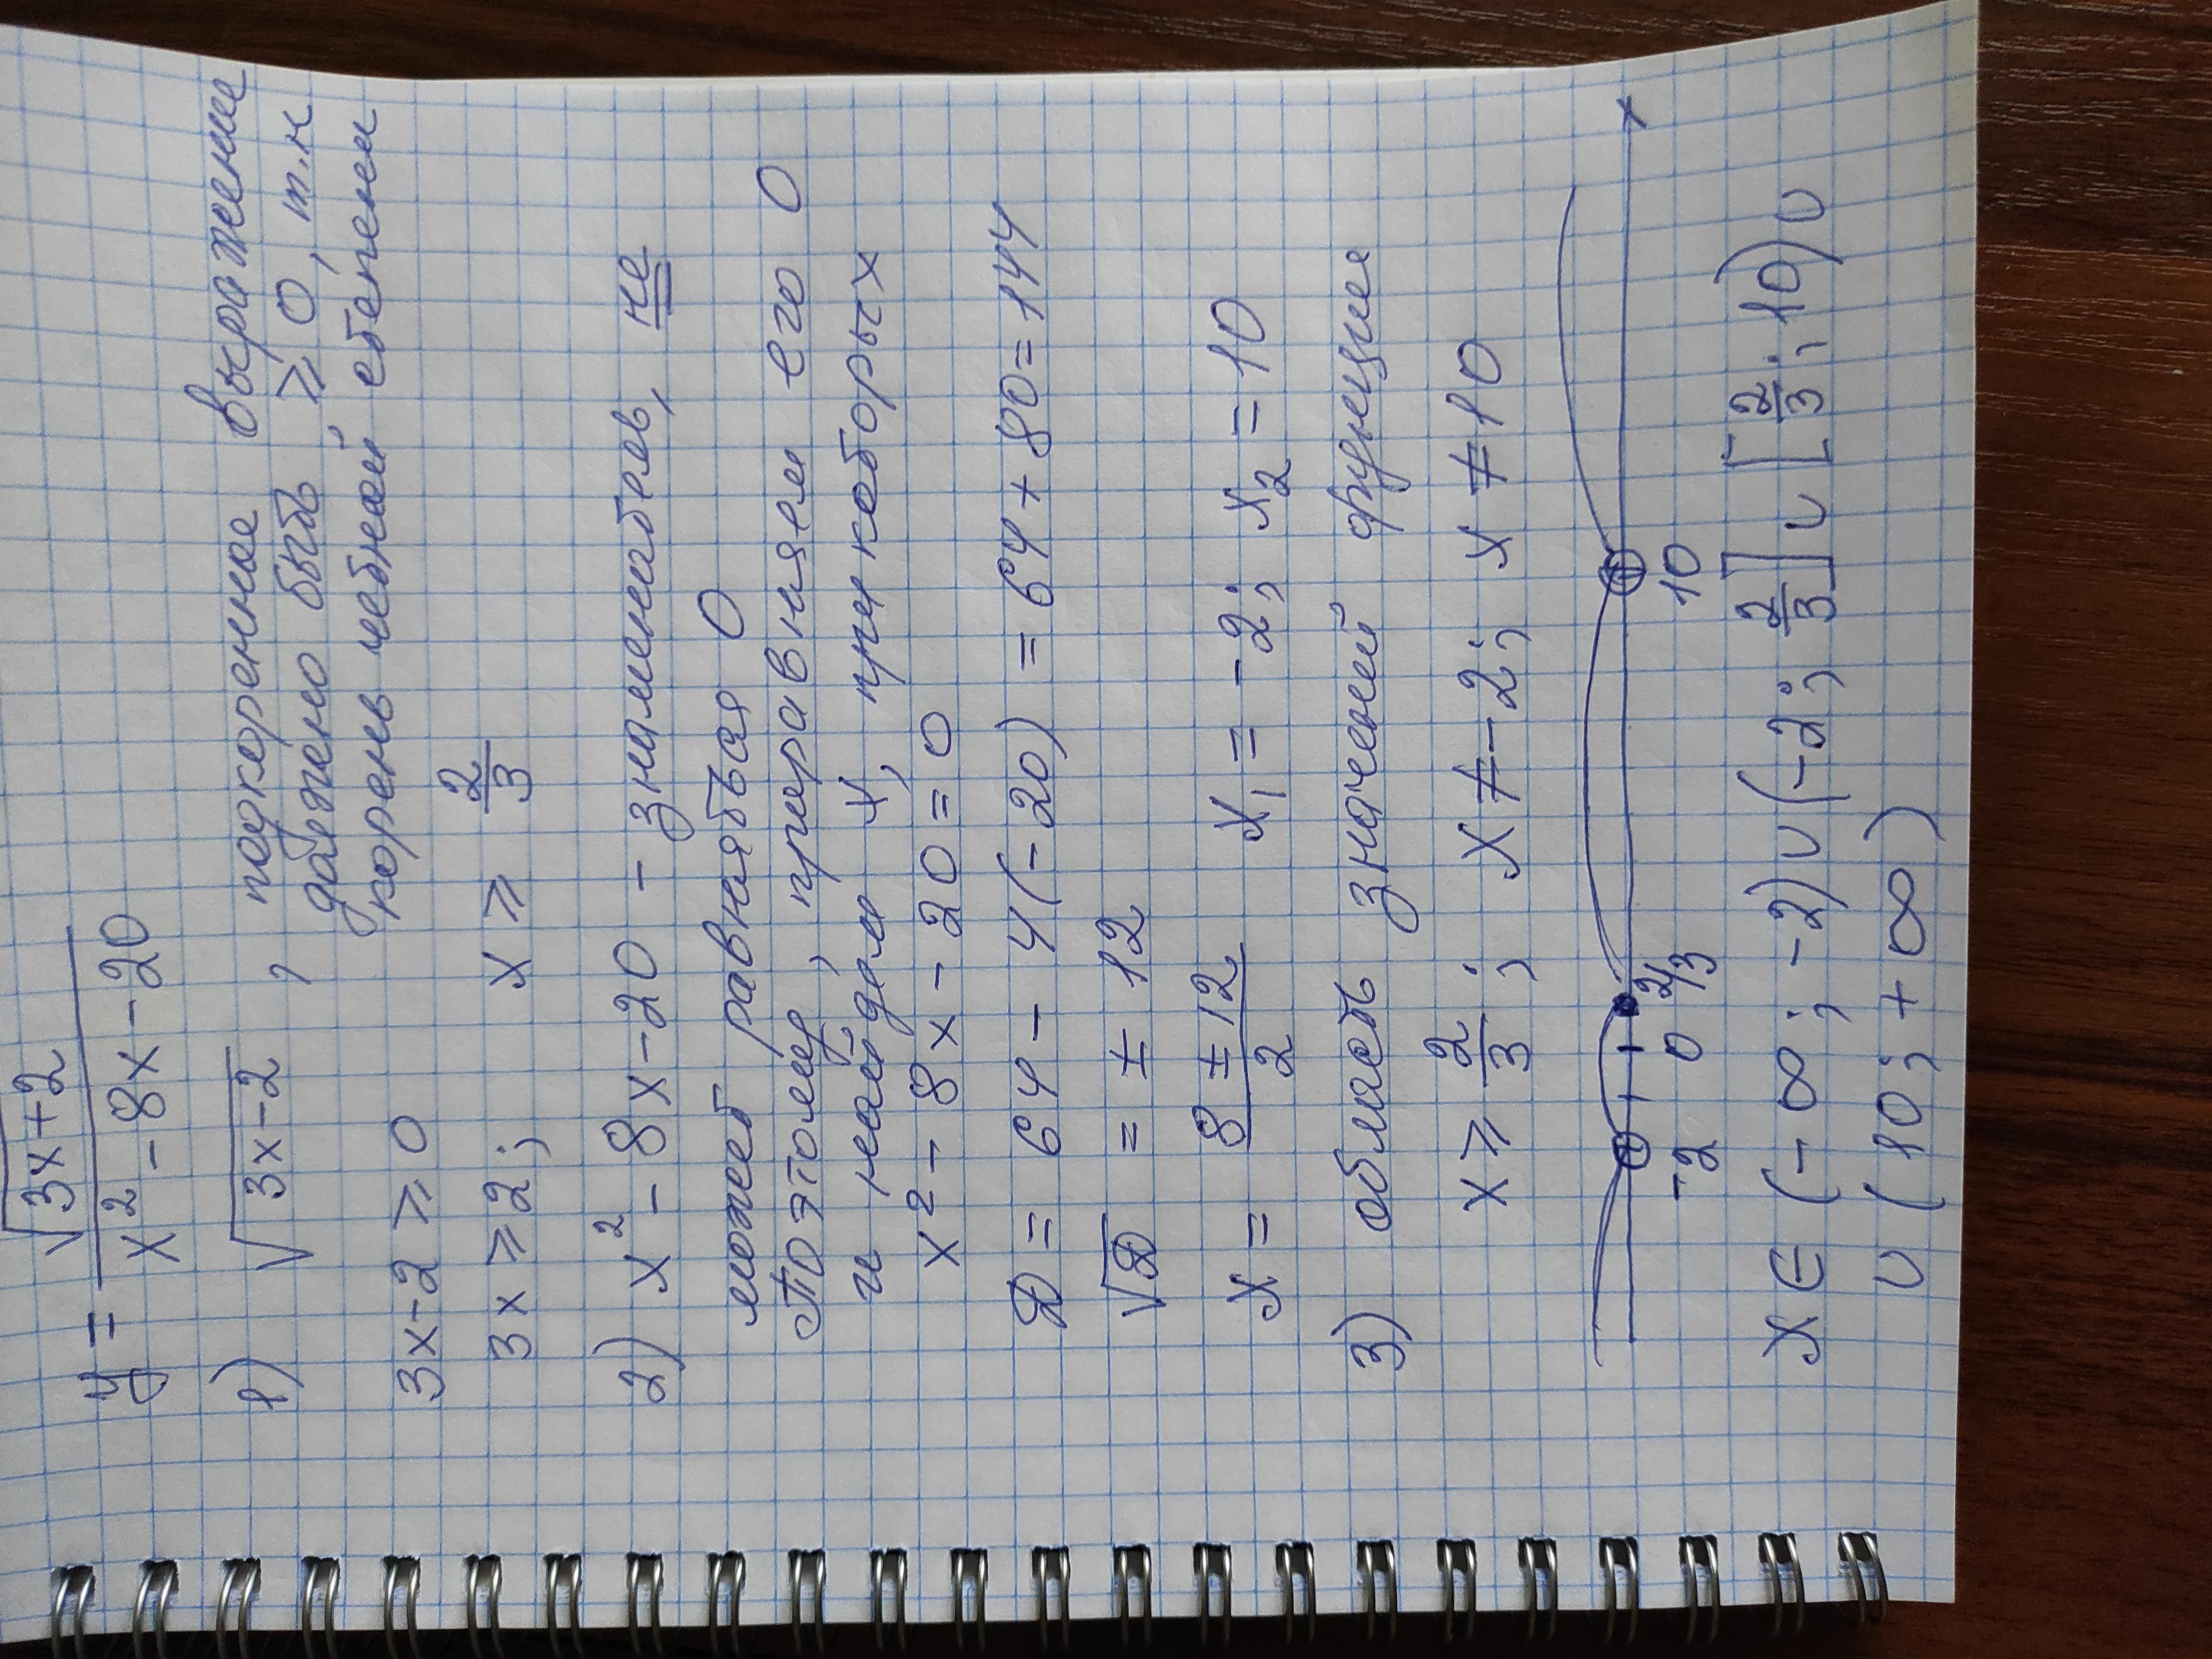 y = √3x+2 / x² - 8x - 20
1) √3x-2 , подкоренное выражение
должно быть ≥ 0, т.к
корень чётной степени
3x-2 ≥ 0
3x ≥ 2; x ≥ 2/3
2) x² - 8x - 20 - знаменатель, не
может равняться 0
Поэтому, приравняем его 0
и найдём x, при которых
x² - 8x - 20 = 0
D = 64 - 4(-20) = 64 + 80 = 144
√D = ± 12
x = 8 ± 12 / 2 x₁ = -2; x₂ = 10
3) область значений функции
x ≥ 2/3; x ≠ -2; x ≠ 10
-2 0 2/3 10 x
x ∈ (-∞; -2) ∪ (-2; 2/3] ∪ [2/3; 10) ∪
∪ (10; +∞)